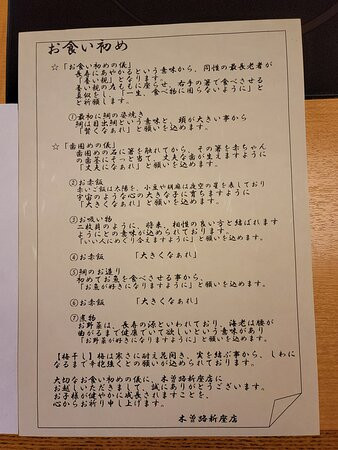 お食い初め
☆「お食い初めの儀」
長寿にあやかるという意味から、同性の最長老者が
「養い親」となります。
養い親の左ももに座らせ、右手の箸で食べさせる
真似をし、「一生、食べ物に困らないように」と
と祈願します。
①最初に鯛の姿焼き
鯛は目出鯛という意味と、頭が大きい事から
「賢くなぁれ」と願いを込めます。
☆「歯固めの儀」
歯固めの石に箸を触れてから、その箸を赤ちゃん
の歯茎にそっと当て、丈夫な歯が生えますように
「丈夫になぁれ」と願いを込めます。
②お赤飯
赤いご飯は太陽を、小豆や胡麻は夜空の星を表しており
宇宙のような心の大きな子に育ちますように
「大きくなぁれ」と願いを込めます。
③お吸い物
二枚貝のように、将来、相性の良い方と結ばれます
ようにとの意味が込められております。
「いい人にめぐり会えますように」と願いを込めます。
④お赤飯 「大きくなぁれ」
⑤鯛のお造り
初めてお魚を食べさせる事から、
「お魚が好きになりますように」と願いを込めます。
⑥お赤飯 「大きくなぁれ」
⑦煮物
お野菜は、長寿の源といわれており、海老は腰が
曲がるまで健康でいて欲しいという意味があり
「お野菜が好きになりますように」と願いを込めます。
【梅干し】梅は寒さに耐え花開き、実を結ぶ事から、しわに
なるまで辛抱強くとの願いが込められております。
大切なお食い初めの儀に、木曽路新座店に
お越しいただきまして、誠にありがとうございます。
お子様が健やかに成長されますことを、
心からお祈り申し上げます。
木曽路新座店